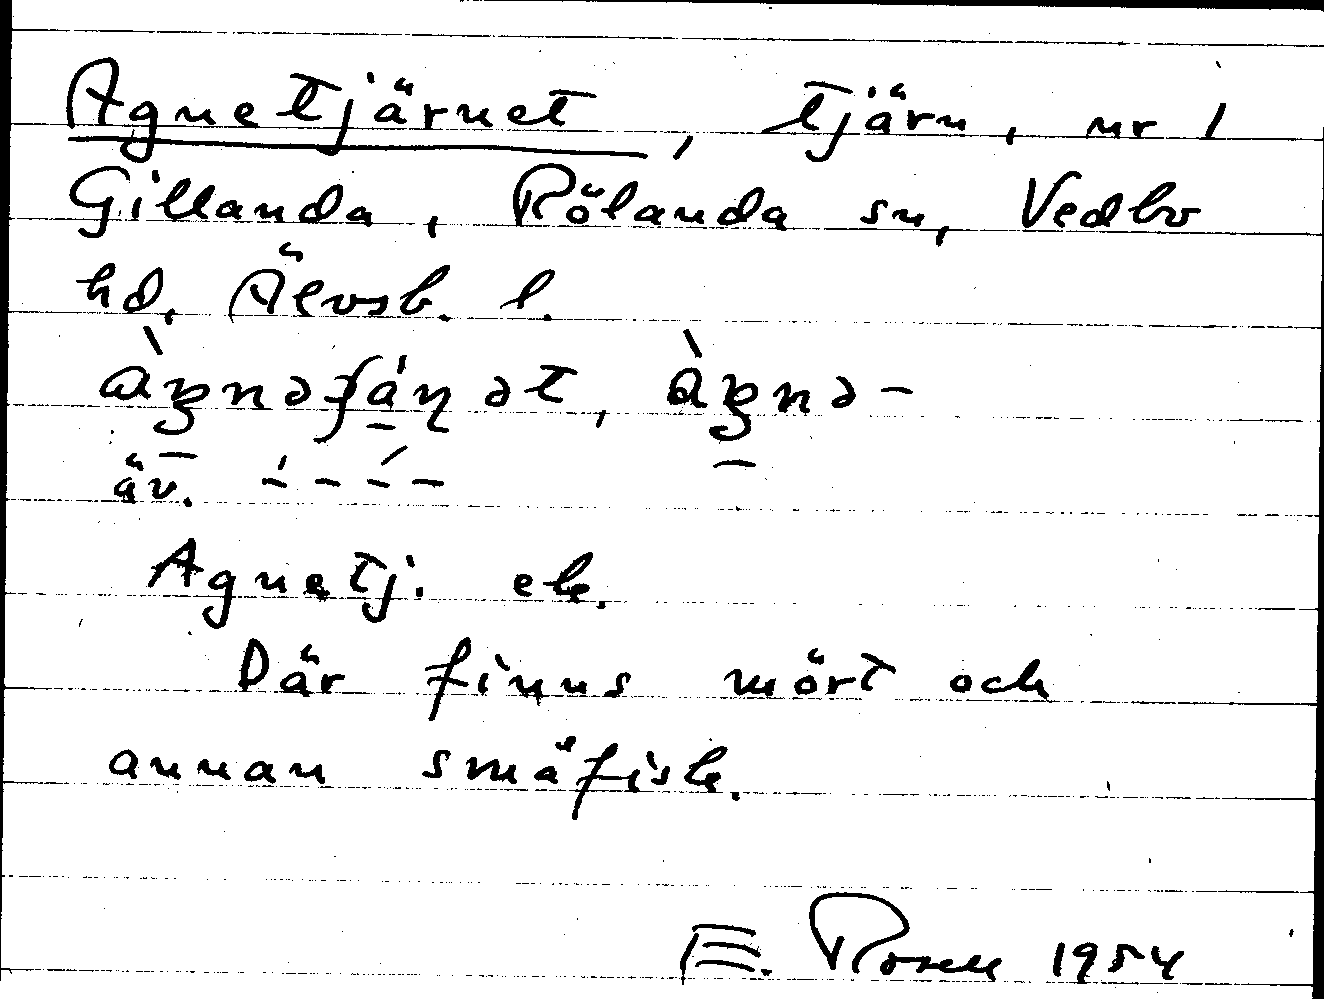 Agnetjärnet, tjärn, nr 1
Gillanda, Rölanda sn, Vedbo
hd, Älvsb. l.
àgnəʃáɳət, àgnə-
äv. - - - -
Agnetj. ek.
Där finns mört och
annan småfisk.
E. Rosell 1954